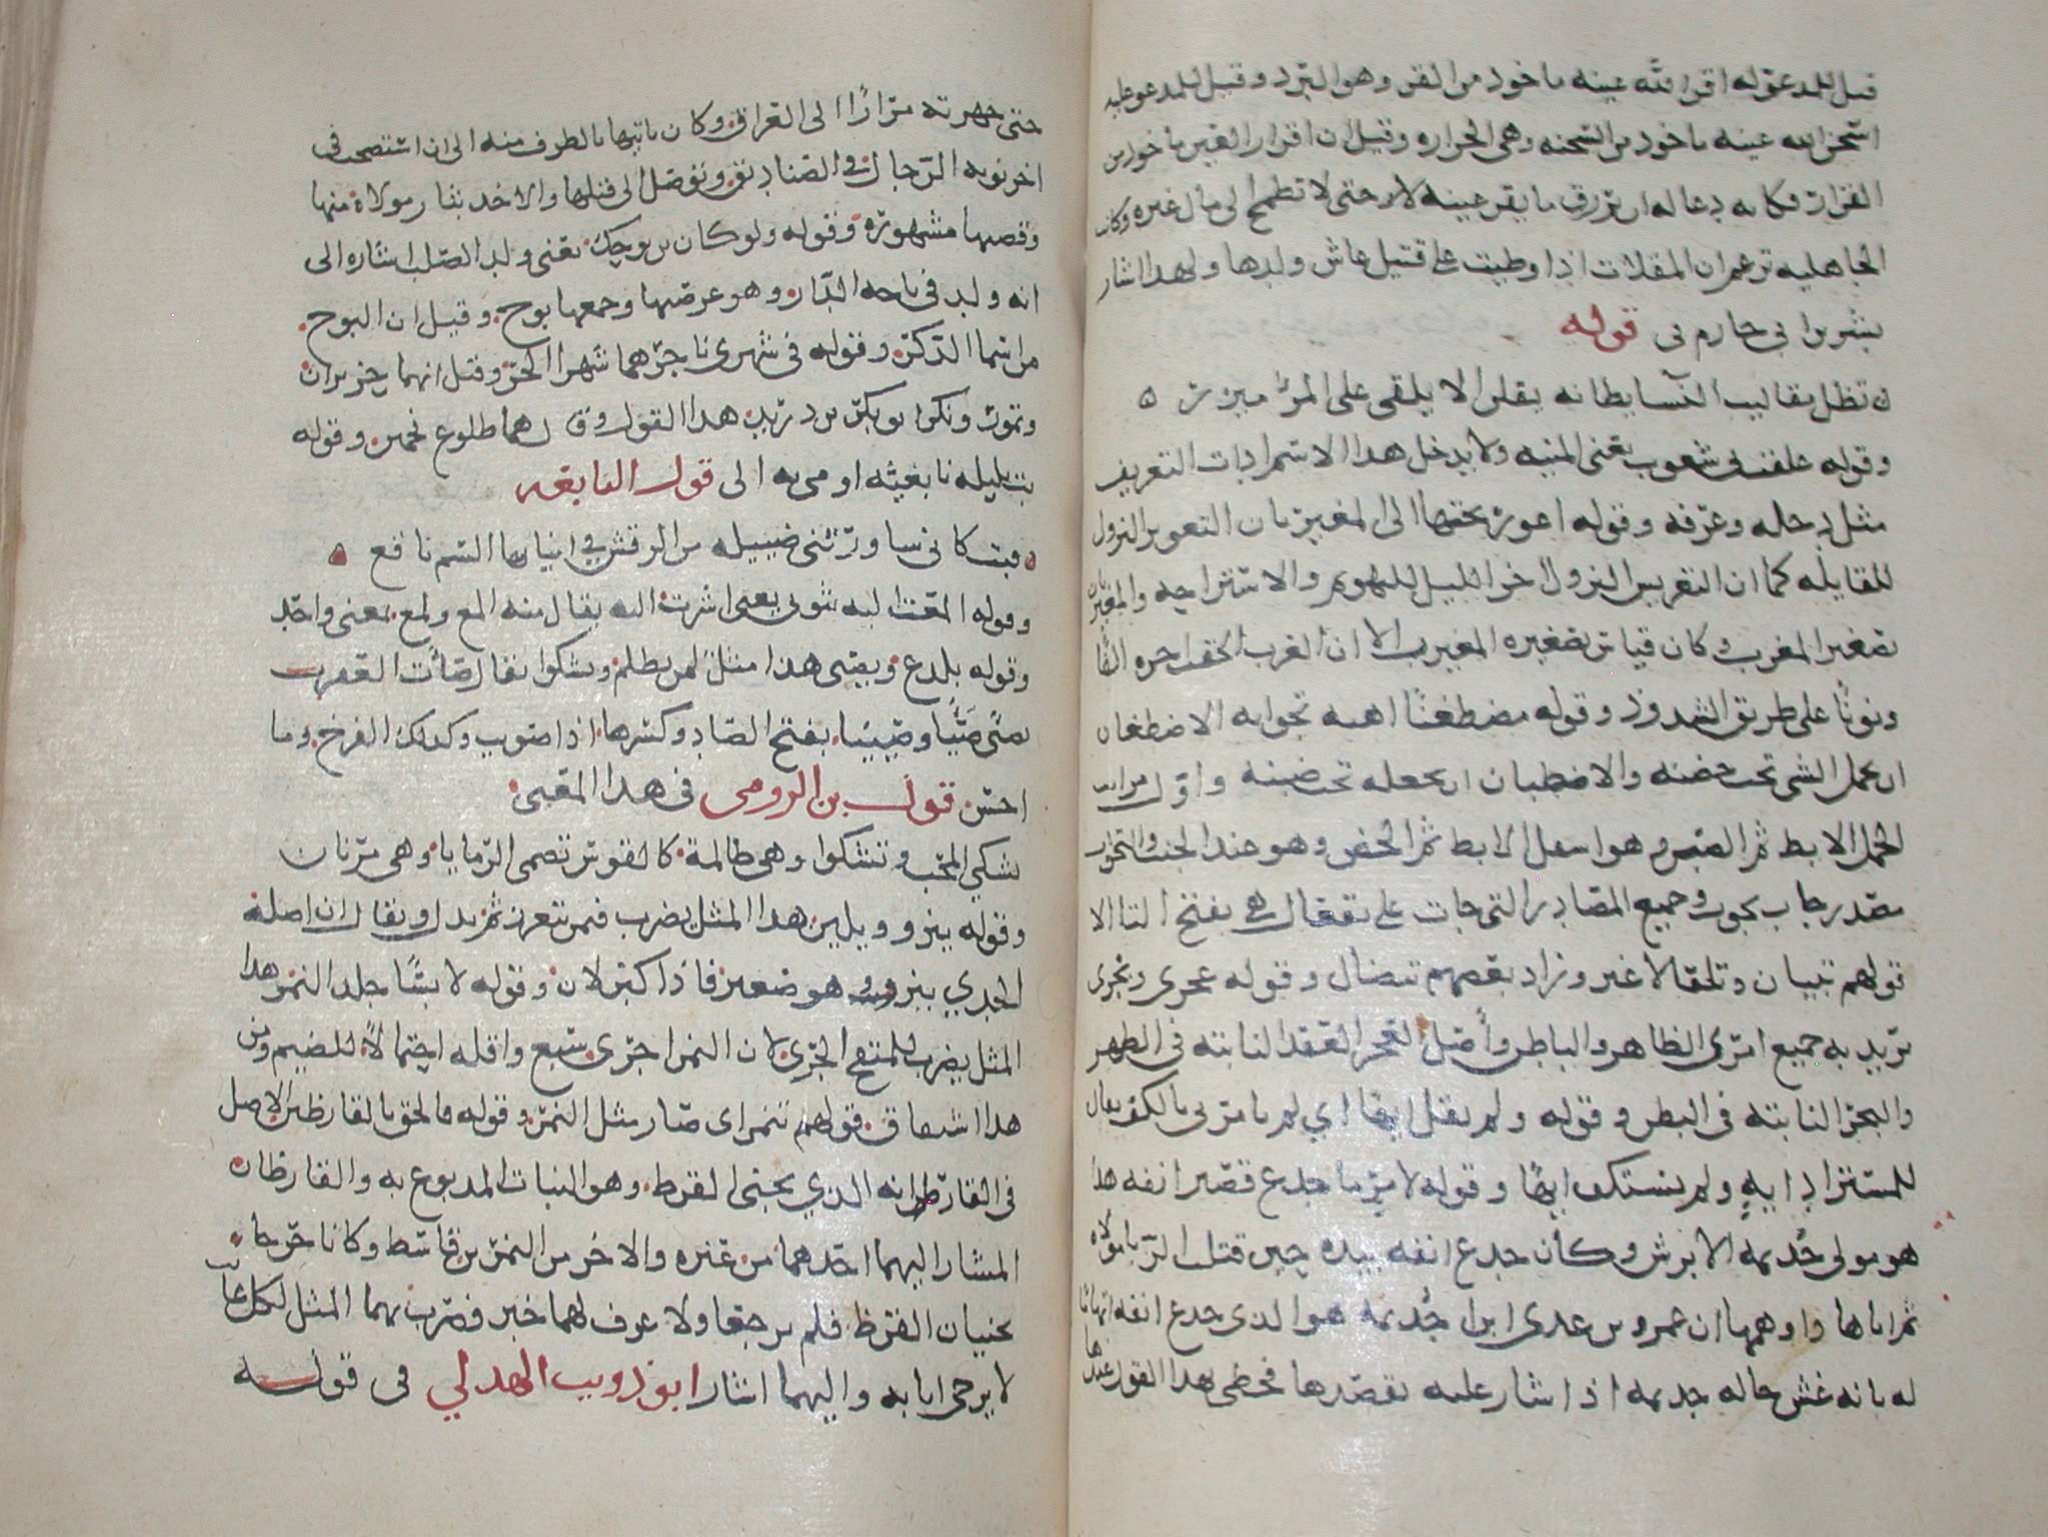 قيل للمدعو له اقر الله عينه ماخوذ من القر وهو البرد وقيل للمدعو عليه
اسخن الله عينه ماخوذ من السخنه وهي الحراره وقيل ان اقرار العين ماخوذ من
القرار فكانه دعا له ان يرزق ما يقر عينه لاٮ حتى لا تطمح الى مال غيره وكانت
الجاهليه تزعم ان المقلات اذا وطيت على قتيل عاش ولدها ولهذا اشار
بشر بن ابي حازم في قوله
تظل مقاليت النسا يطانه يقلن الا يلقى على المرء ميزر
وقوله علقت بي شعوب يعني المنيه ولا يدخل هذا الاسم اداة التعريف
مثل دجله وعرفه وقوله اعور بحقها الى المغيربان التعوير النزول
للقايله كما ان التعريس النزول اخر الليل للتهويم والاستراحه والمغيربان
تصغير المغرب وكان قياس تصغيره المغيرب الا ان العرب الحقت اخره الفا
ونونا على طريق الشذوذ وقوله مضطغنا اهبه تجوابه الاضطغان
ان يحمل الشي تحت حضنه والاضطبان ان يجعله تحت ضبنه واول مراتب
الحمل الابط ثم الضبن وهو اسفل الابط ثم الحضن وهو عند الجنب والتجواب
مصدر جاب يجوب وجميع المصادر التي جات على تفعال هي بفتح التا الا
قولهم تبيان وتلقا لا غير وزاد بعضهم تنضال وقوله عجري وبجري
يريد به جميع امري الظاهر والباطن واصل العجر العقد الناتيه في الظهر
والبجر الناتيه في البطن وقوله ولم يقل ايها اي لم يامرني بالكف يقال
للمستزاد ايه ولم يستكف ايها وقوله لامر ما جدع قصير انفه هذا
هو مولى جذيمه الابرش وكان جدع انفه بيده حين قتلت الزبا مولاه
ثم اتاها واوهمها ان عمرو بن عدي ابن اخت جذيمه هو الذي جدع انفه اتهاما
له بانه غش خاله جذيمه اذ اشار عليه بقصدها فحظي بهذا القول عندها
حتى جهزته مرارا الى العراق وكان ياتيها بالطرف منه الى ان استصحب في
اخر نوبه الرجال في الصناديق وتوصل الى قتلها والاخذ بثار مولاه منها
وقصتها مشهوره وقوله ولو كان بن بوحك يعني ولد الصلب اشاره الى
انه ولد في باحه الدار وهو عرصتها وجمعها بوح وقيل ان البوح
من اسما الذكر وقوله في شهري ناجر هما شهرا الحر وقيل انهما حزيران
وتموز وانكر ابو بكر بن دريد هذا القول وقال هما طلوع نجمين وقوله
بت بليله نابغيه اومى به الى قول النابغه
فبت كاني ساورتني ضئيله من الرقش في انيابها السم ناقع
وقوله المعت اليه بثوبي يعني اشرت اليه يقال منه المع ولمع بمعنى واحد
وقوله يلدغ ويصي هذا مثل لمن يظلم ويشكوا يقال صات العقرب
تصي صيا وصييا بفتح الصاد وكسرها اذا صوتت وكذلك الفرخ وما
احسن قول بن الرومي في هذا المعنى
تشكي المحب وتشكوا وهي ظالمة كالقوس تصمي الرمايا وهي مرنان
وقوله ينزو ويلين هذا المثل يضرب فيمن يتعزز ثم يذل ويقال ان اصله
الجدي ينزو وهو صغير فاذا كبر لان وقوله لابسا جلد النمر هذا
المثل يضرب للمتقح الجري لان النمر اجرى سبع واقله احتمالا للضيم ومن
هذا اشتقاق قولهم تنمر اي صار مثل النمر وقوله فالحق بالقارظين الاصل
في القارظ انه الذي يجني القرظ وهو النبات المدبوغ به والقارظان
المشار اليهما احدهما من عنزه والاخر من النمر بن قاسط وكانا خرجا
يجنيان القرظ فلم يرجعا ولا عرف لهما خبر فضرب بهما المثل لكل غائب
لا يرجى ايابه واليهما اشار ابو ذويب الهذلي في قوله